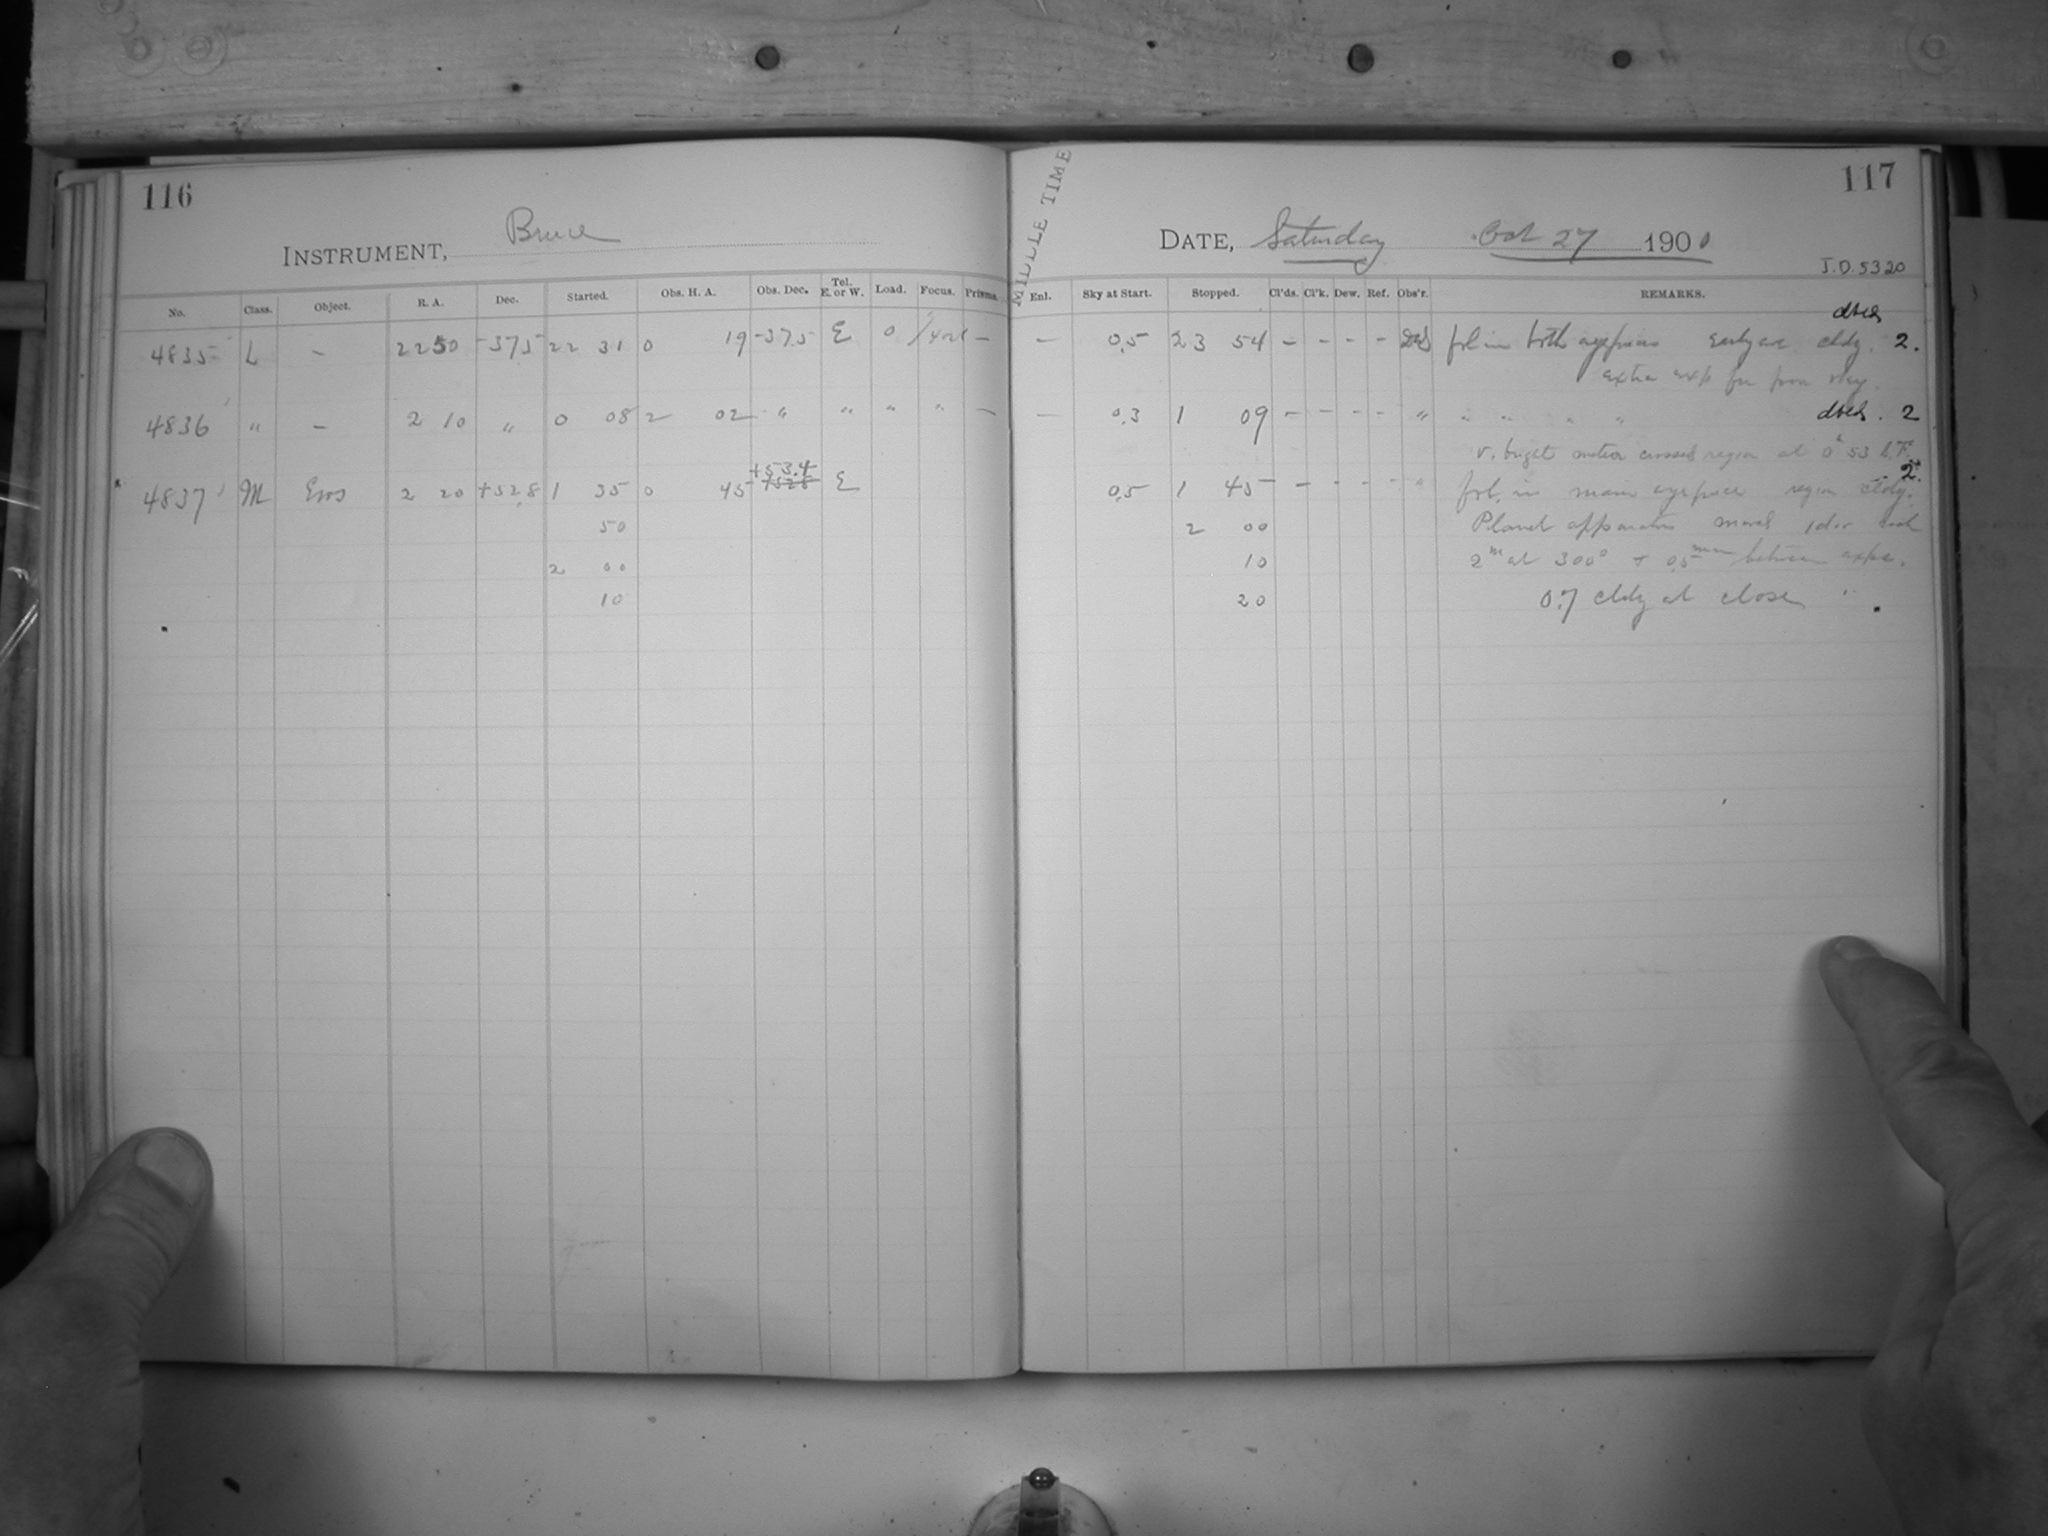 116
INSTRUMENT, Bruce
No. Class. Object. R. A. Dec. Started. Obs. H. A. Obs. Dec. Tel. E. or W. Load. Focus. Prisms.
4835 L – 22 50 -37.5 22 31 0 19 -37.5 E 0 –
4836 " – 2 10 " 0 08 2 02 " " " " –
+53.4
4837 M Eros 2 20 +52.8 1 35 0 45 +52.8 E
50
2 00
10
MIDDLE TIME
117
DATE, Saturday Oct 27 1900
J.D. 5320
Enl. Sky at Start. Stopped. Cl'ds. Cl'k. Dew. Ref. Obs'r. REMARKS.
– 0.5 23 54 – – – – fol in both eyepieces cldy. 2.
extra exp for poor sky.
– 0.3 1 09 – – – – " " " " " 2
v. bright meteor crossed region at 0h 53
0.5 1 45 – – – – " fol. in main eyepiece region cldy. 2.
2 00 Planet apparatus moved
10 2m at 300° + 0.5 between exps.
20 0.7 cldy at close